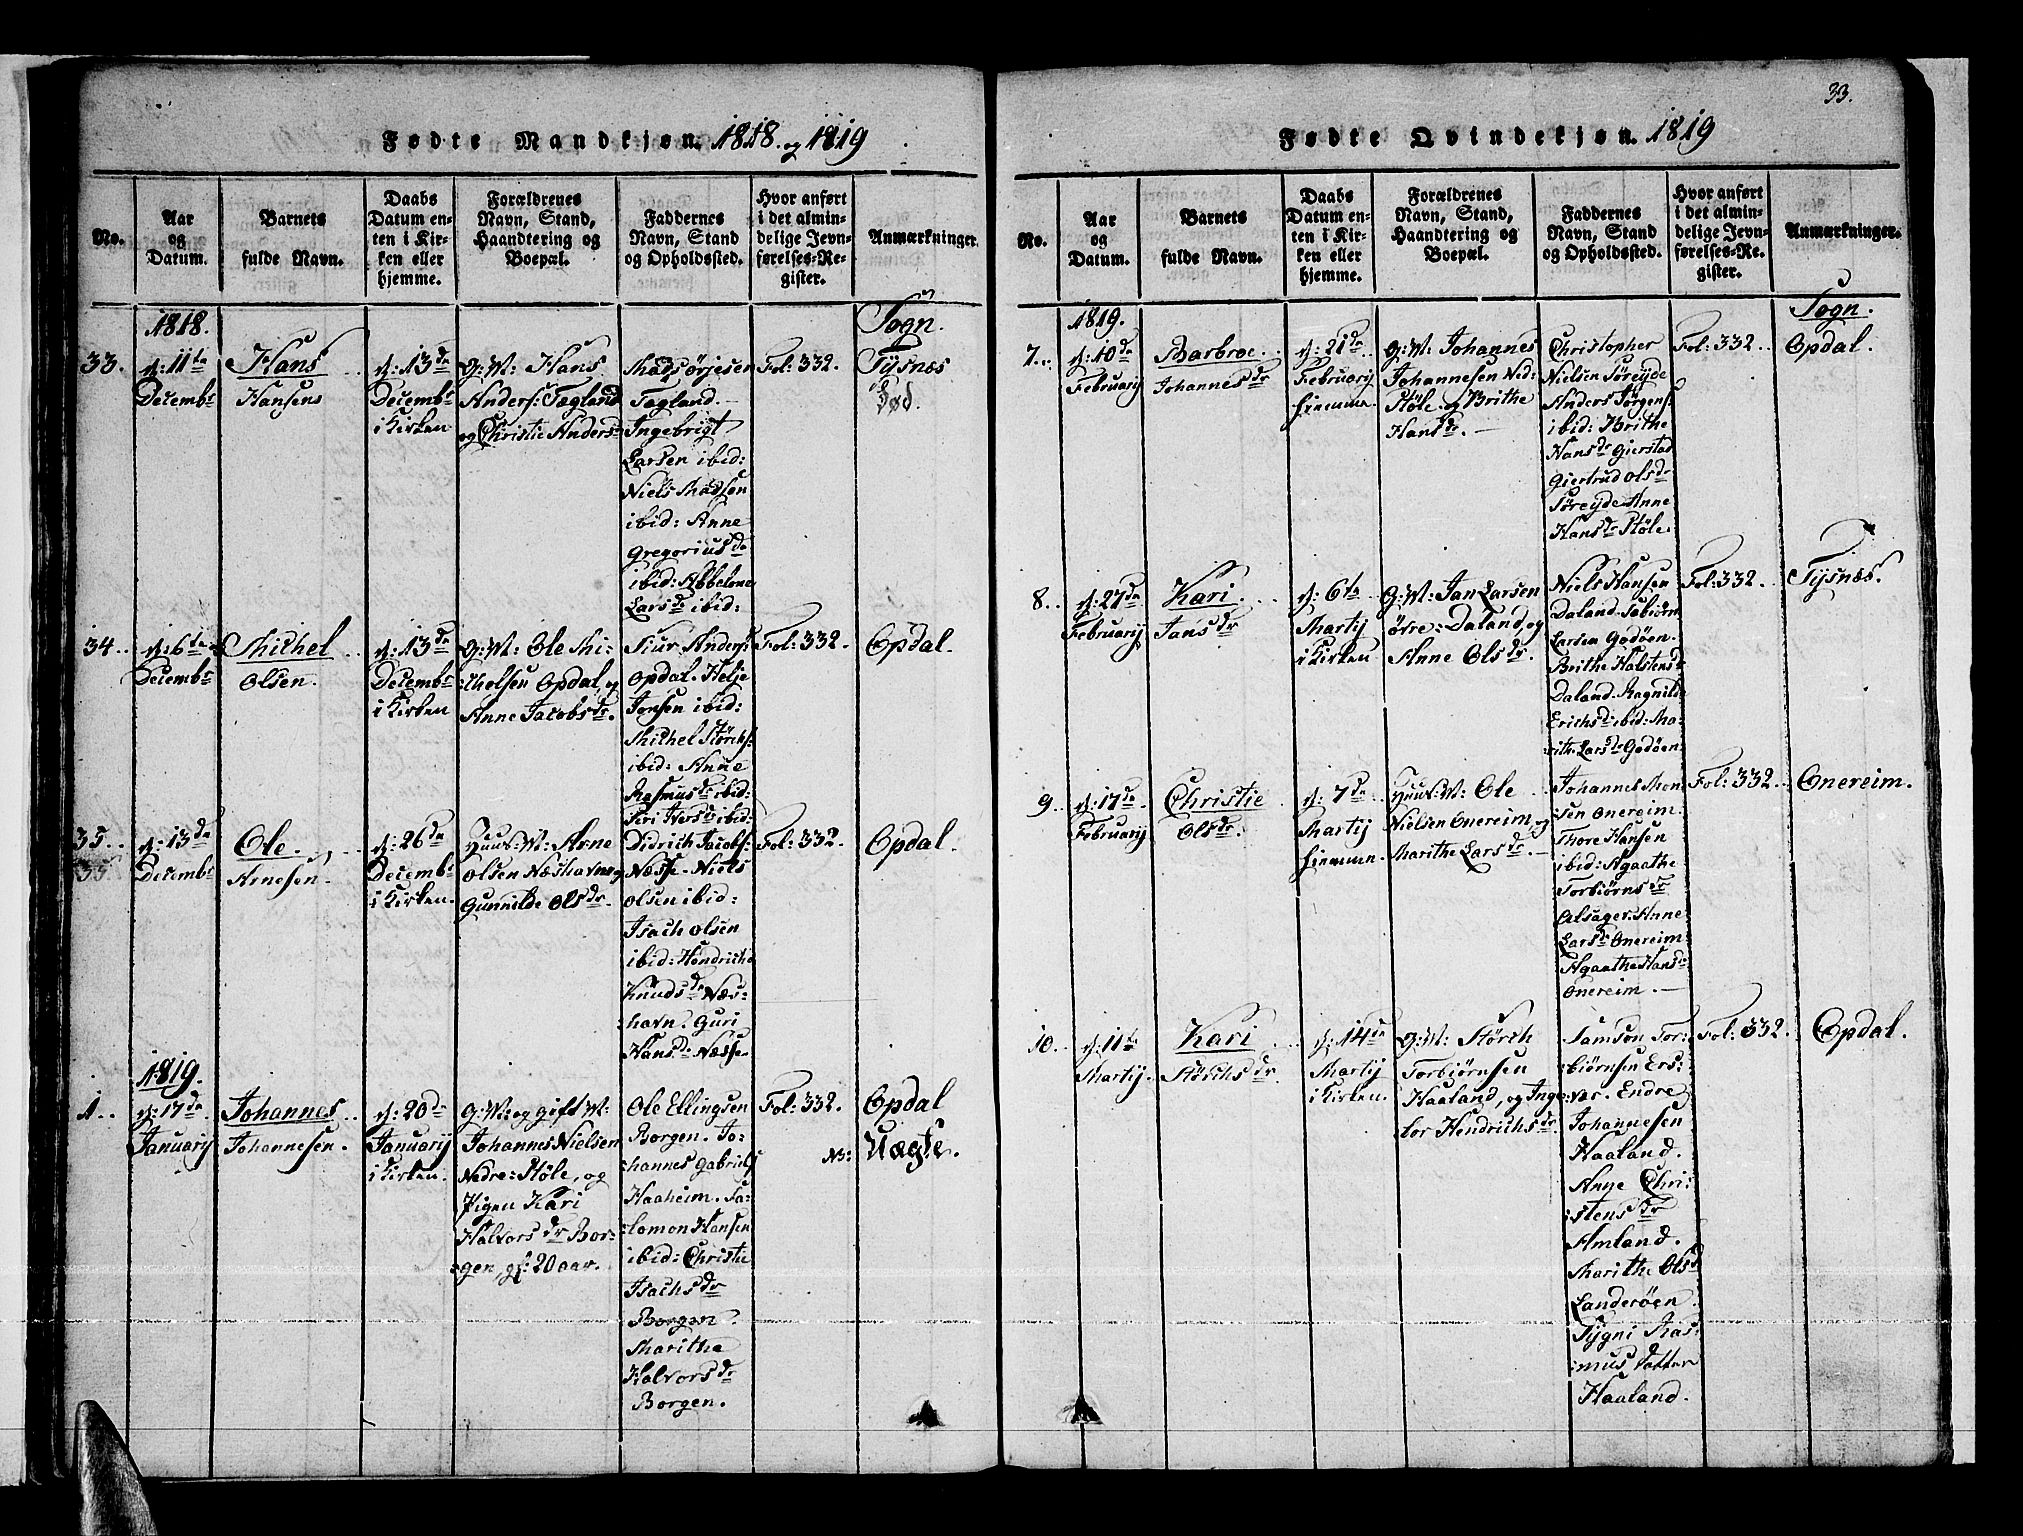 Fødte Mandkjøn. 1818. og 1819
No.
Aar
og
Datum.
Barnets
fulde Navn.
Daabs
Datum en-
ten i Kir-
ken eller
hjemme.
Forældrenes
Navn, Stand,
Haandtering og
Boepæl.
Faddernes
Navn, Stand
og Opholdssted.
Hvor anført
i det almin-
delige Jevn-
førelses-Re-
gister.
Anmærkninger.
1818.
Sogn.
33.
d: 11te
Decembr
Hans
Hansens
d: 13de
Decembr
i Kirken
G: M: Hans
Anders: Tegland
og Christie Andersd
Mads Ørjesen
Tegland.
Ingebrigt
Larsen ibid:
Niels Madsen
ibid: Anne
Gregoriusda
ibid: Abbelone
Larsdr ibid:
Fol: 332.
Tysnæs
død.
34.
d: 6te
Decembr
Michel
Olsen.
d: 13de
Decembr
i Kirken
G: M: Ole Mi-
:chelsen Opdal, og
Anne Jacobsdr.
Siur Anders:
Opdal. Helje
Jonsen ibid:
Michel Størchs:
ibid: Anne
Rasmusdr ibid:
Siri Iversdr ibid:
Fol: 332.
Opdal.
35.
35
d: 13de
Decembr
Ole.
Arnesen.
d: 26de
Decembr
i Kirken.
Huus: M: Arne
Olsen Næshavn og
Gunnilde Olsdr.
Didrich Jacobs:
Næsse. Niels
Olsen ibid:
Isach Olsen
ibid: Hendricha
Knudsdr Næs:
:havn. Guri
Hansdr Næsse
Fol: 332.
Opdal.
1819.
1.
d: 17de
Januarij
Johannes
Johannesen.
d: 20de
Januarij
i Kirken.
G: M: og gift M:
Johannes Nielsen
Nedre: Støle, og
Pigen Kari
Halvorsdr Bor:
:gen, gl: 20 aar.
Ole Ellingsen
Borgen. Jo:
:hannes Gabriels
Haaheim. Sa:
:lomon Hansen
ibid: Christie
Isachsdr
Borgen
Marithe
Halvorsdr
Borgen.
Fol: 332.
NB:
Opdal
Uægte.
33.
Fødte Qvindekjøn. 1819
No.
Aar
og
Datum.
Barnets
fulde Navn.
Daabs
Datum en-
ten i Kir-
ken eller
hjemme.
Forældrenes
Navn, Stand,
Haandtering og
Boepæl.
Faddernes
Navn, Stand
og Opholdssted.
Hvor anført
i det almin-
delige Jevn-
førelses-Re-
gister.
Anmærkninger.
1819.
Sogn.
7.
d: 10de
Februarij
Barbroe.
Johannesdr
d: 21de
Februarij
hiemme.
G: M: Johannes
Johannesen Ned:
Støle og Brithe
Hansdr.
Christopher
Nielsen Søreyde
Anders Jørgens:
ibid: Brithe
Hansdr Gierstad
Giertrud Olsdr
Søreyde Anne
Hansdr Støle.
Fol: 332.
Opdal.
8.
d: 27de
Februarij
Kari.
Jansdr
d: 6te
Martij
i Kirken
G: M: Jan Larsen
øvre: Daland, og
Anne Olsdr.
Niels Hansen
Daland. Tabiørn
Larsen Godøen.
Brithe Halstensdr
Daland. Ragnilde
Erichsdr ibid: Ma:
:rithe Larsdr Godøen.
Fol: 332.
Tysnæs.
9.
d: 17de
Februarij
Christie
Olsdr.
d: 7de
Martij
hiemme.
Huus: M: Ole
Nielsen Onereim, og
Marithe Larsdr.
Johannes Mon
sen Onereim.
Thore Hansen
ibid: Agaathe
Torbiørnsdr
Alsager. Anne
Larsdr Onereim.
Agaathe Hansdr
Onereim.
Fol: 332.
Onereim.
10.
d: 11te
Martij.
Kari
Størchsdr
d: 14de
Martij
i Kirken.
G: M: Størch
Torbiørnsen
Haaland, og Inge:
:bor Hendrichsdr.
Samson Tor:
:biørnsen Ers:
:vær. Endre
Johannesen
Haaland.
Anne Chri:
:stensdr
Amland.
Marithe Olsd
Landerøen
Sygni Ras:
:mus datter
Haaland.
Fol: 332.
Opdal.